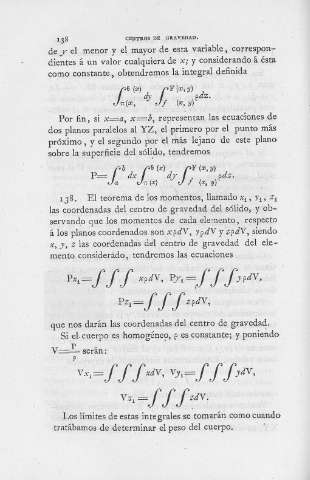 138 CENTROS DE GRAVEDAD.
de y el menor y el mayor de esta variable, correspon-
dientes á un valor cualquiera de x; y considerando á ésta
como constante, obtendremos la integral definida
∫_{n(x)}^{b(x)} dy ∫_{f(x, y)}^{F(x, y)} ρdz.
Por fin, si x=a, x=b, representan las ecuaciones de
dos planos paralelos al YZ, el primero por el punto más
próximo, y el segundo por el más lejano de este plano
sobre la superficie del sólido, tendremos
P=∫_{a}^{b} dx ∫_{n(x)}^{b(x)} dy ∫_{f(x, y)}^{F(x, y)} ρdz.
138. El teorema de los momentos, llamado x₁, y₁, z₁
las coordenadas del centro de gravedad del sólido, y ob-
servando que los momentos de cada elemento, respecto
á los planos coordenados son xρdV, yρdV y zρdV, siendo
x, y, z las coordenadas del centro de gravedad del ele-
mento considerado, tendremos las ecuaciones
Px₁=∫∫∫ xρdV, Py₁=∫∫∫yρdV,
Pz₁=∫∫∫zρdV,
que nos darán las coordenadas del centro de gravedad.
Si el cuerpo es homogéneo, ρ es constante; y poniendo
V=P/ρ serán:
Vx₁=∫∫∫xdV, Vy₁=∫∫∫ydV,
Vz₁=∫∫∫zdV.
Los límites de estas integrales se tomarán como cuando
tratábamos de determinar el peso del cuerpo.